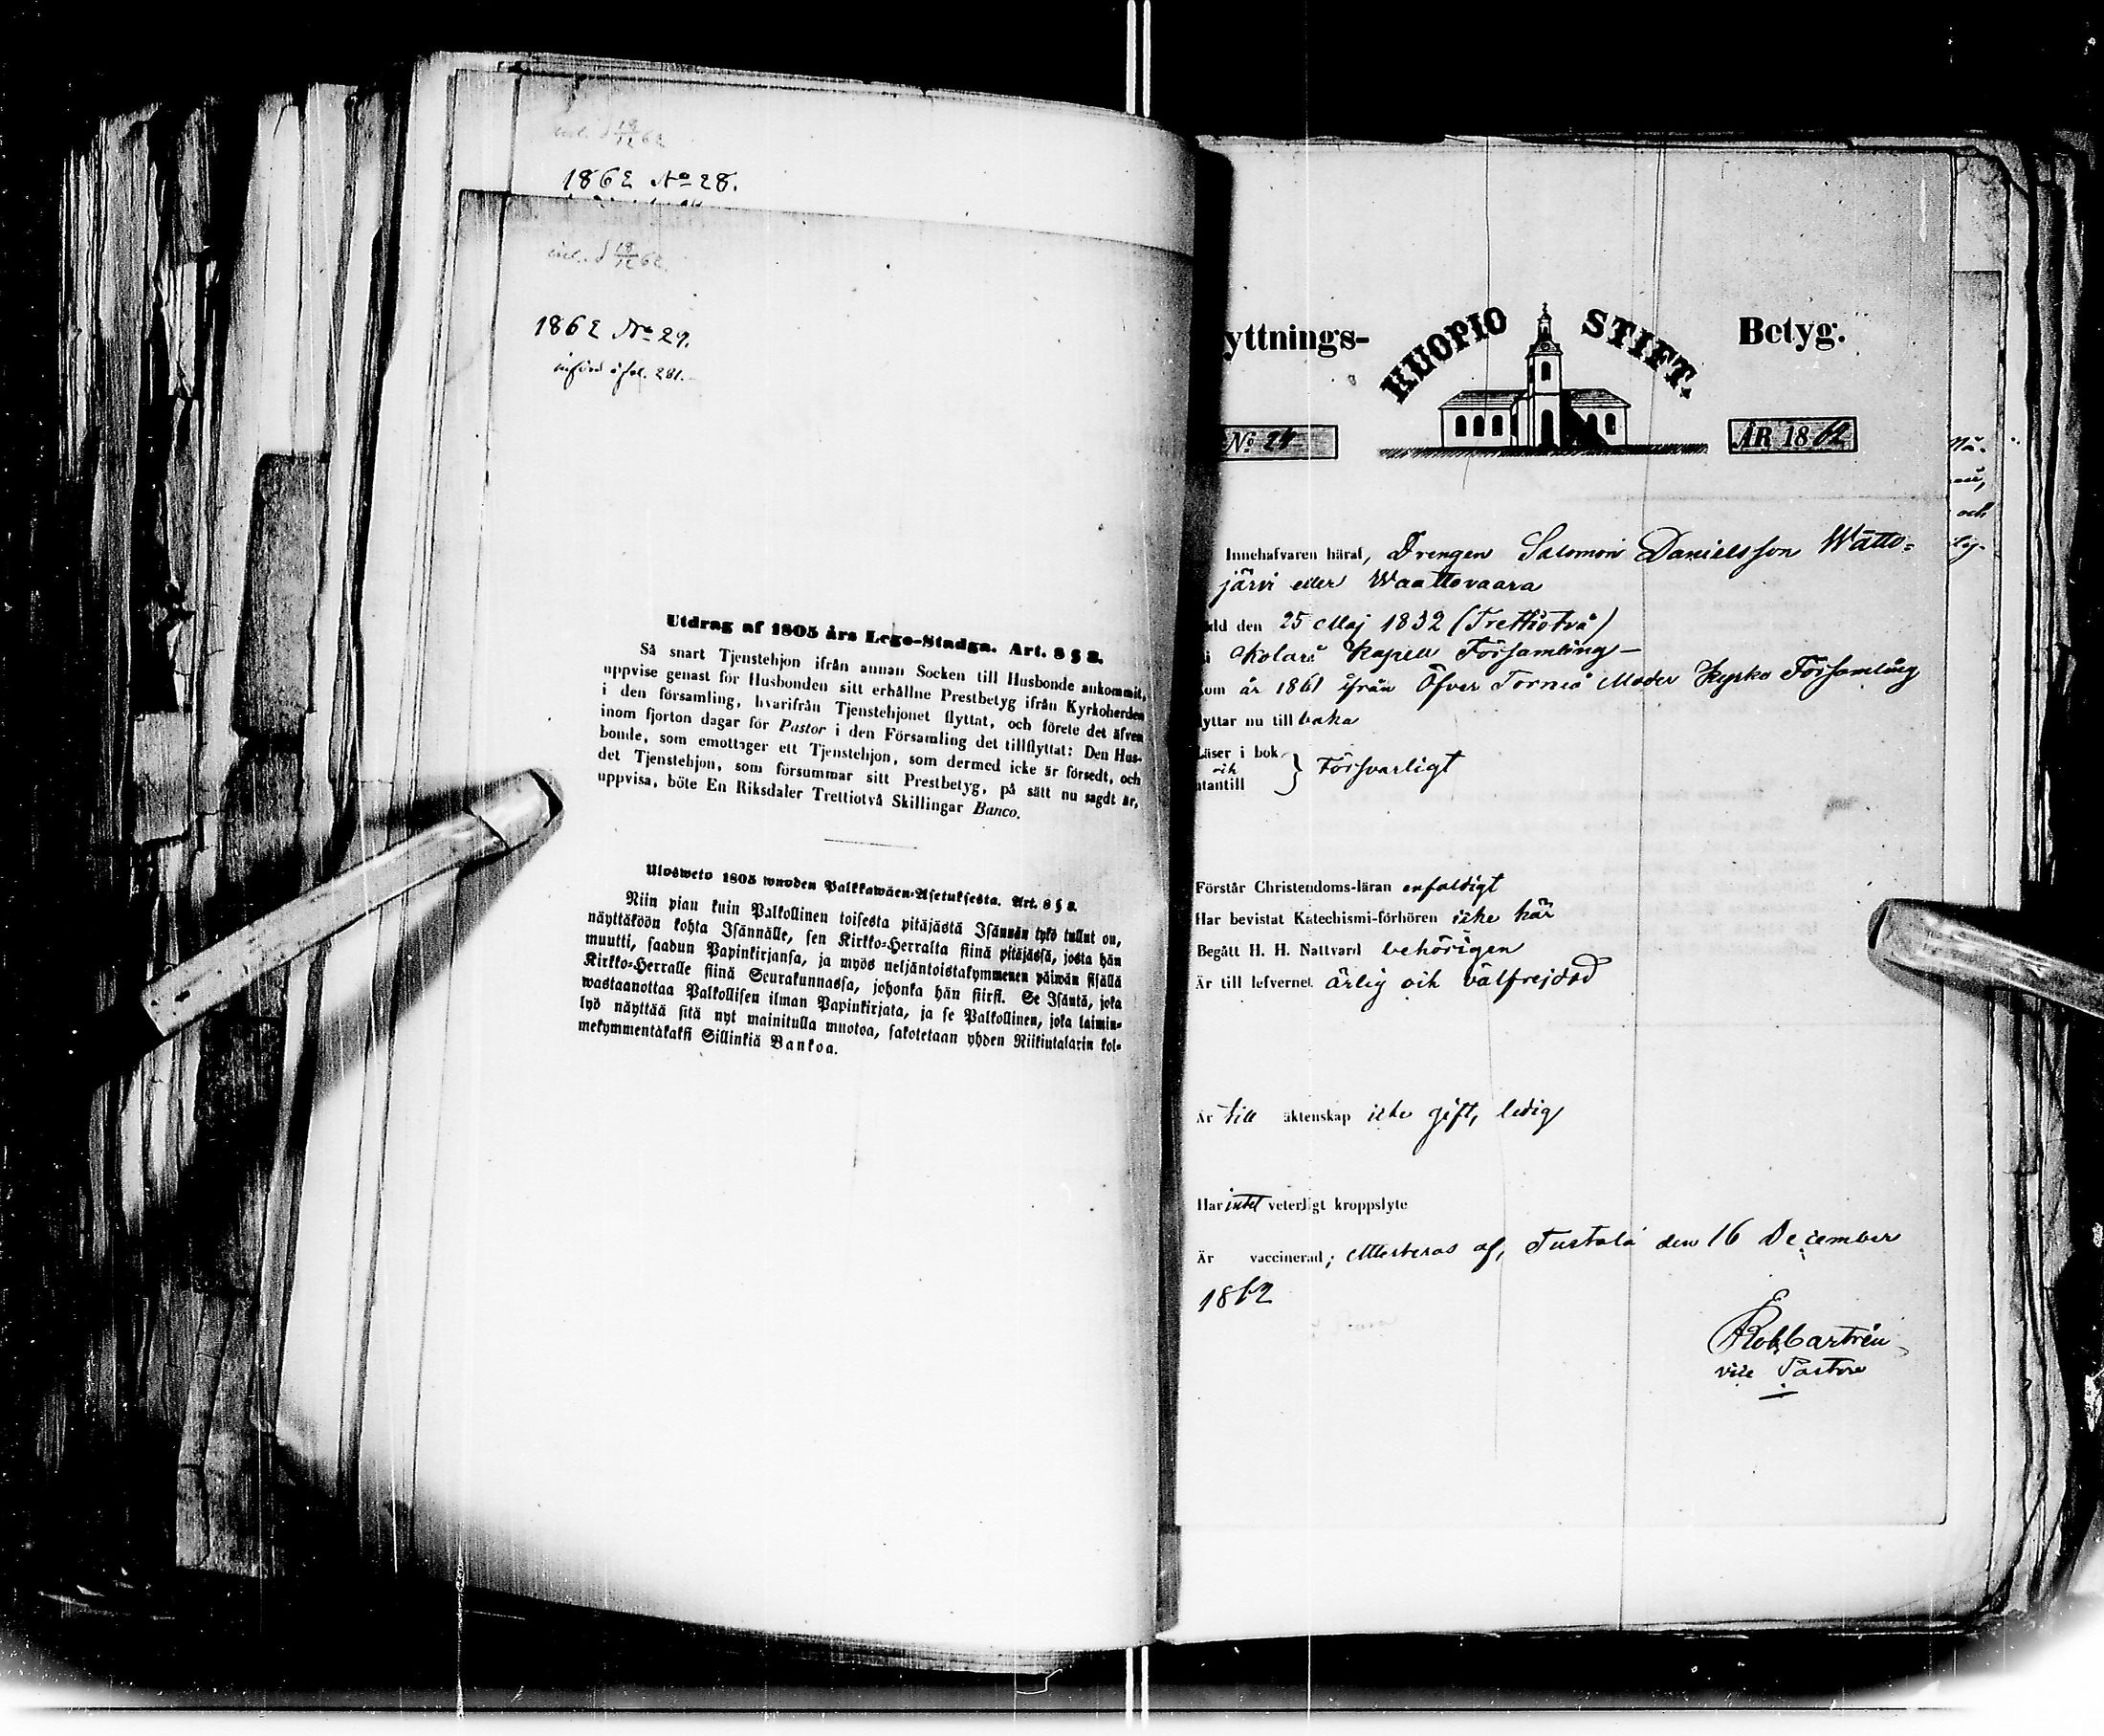 inl. d 19/12 62
1862 No 28.
inl. d 18/12 62.
1862 No 29.
införd i fol. 281.
Utdrag af 1805 års Lego-Stadga. Art. 8 § 8.
Så snart Tjenstehjon ifrån annan Socken till Husbonde ankommit,
uppvise genast för Husbonden sitt erhållne Prestbetyg ifrån Kyrkoherden
i den församling, hvarifrån Tjenstehjonet flyttat, och förete det äfven
inom fjorton dagar för Pastor i den Församling det tillflyttat: Den Hus-
bonde, som emottager ett Tjenstehjon, som dermed icke är försedt, och
det Tjenstehjon, som försummar sitt Prestbetyg, på sätt nu sagdt är,
uppvisa, böte En Riksdaler Trettiotvå Skillingar Banco.
Ulosweto 1805 wuoden Palkkawäen-Asetuksesta. Art. 8 § 8.
Niin pian kuin Palkollinen toisesta pitäjästä Isännän tykö tullut on,
näyttäköön kohta Isännälle, sen Kirkko-Herralta siinä pitäjässä, josta hän
muutti, saadun Papinkirjansa, ja myös neljäntoistakymmenen päiwän sisällä
Kirkko-Herralle siinä Seurakunnassa, johonka hän siirsi. Se Isäntä, joka
wastaanottaa Palkollisen ilman Papinkirjata, ja se Palkollinen, joka laimin-
lyö näyttää sitä nyt mainitulla muotoa, sakotetaan yhden Riikintalarin kol-
mekymmentäkaksi Sillinkiä Bankoa.
yttnings- KUOPIO STIFT. Betyg.
No 24 ÅR 1862
Innehafvaren häraf, Drengen Salomon Danielsson Wätto-
järvi eller Waattovaara
dd den 25 Maj 1832 (Trettiotvå)
i Kolari Kapell Församling
om år 1861 ifrån Öfver Torneå Moder Kyrko Församling
yttar nu till baka
Läser i bok
och } Försvarligt
utantill
Förstår Christendoms-läran enfaldigt
Har bevistat Katechismi-förhören icke här
Begått H. H. Nattvard behörigen
Är till lefvernet ärlig och välfrejdad
Är till äktenskap icke gift, ledig
Har intet veterligt kroppslyte
Är vaccinerad; Attesteras af, Turtola den 16 December
1862
Castrén
vice Pastor
och